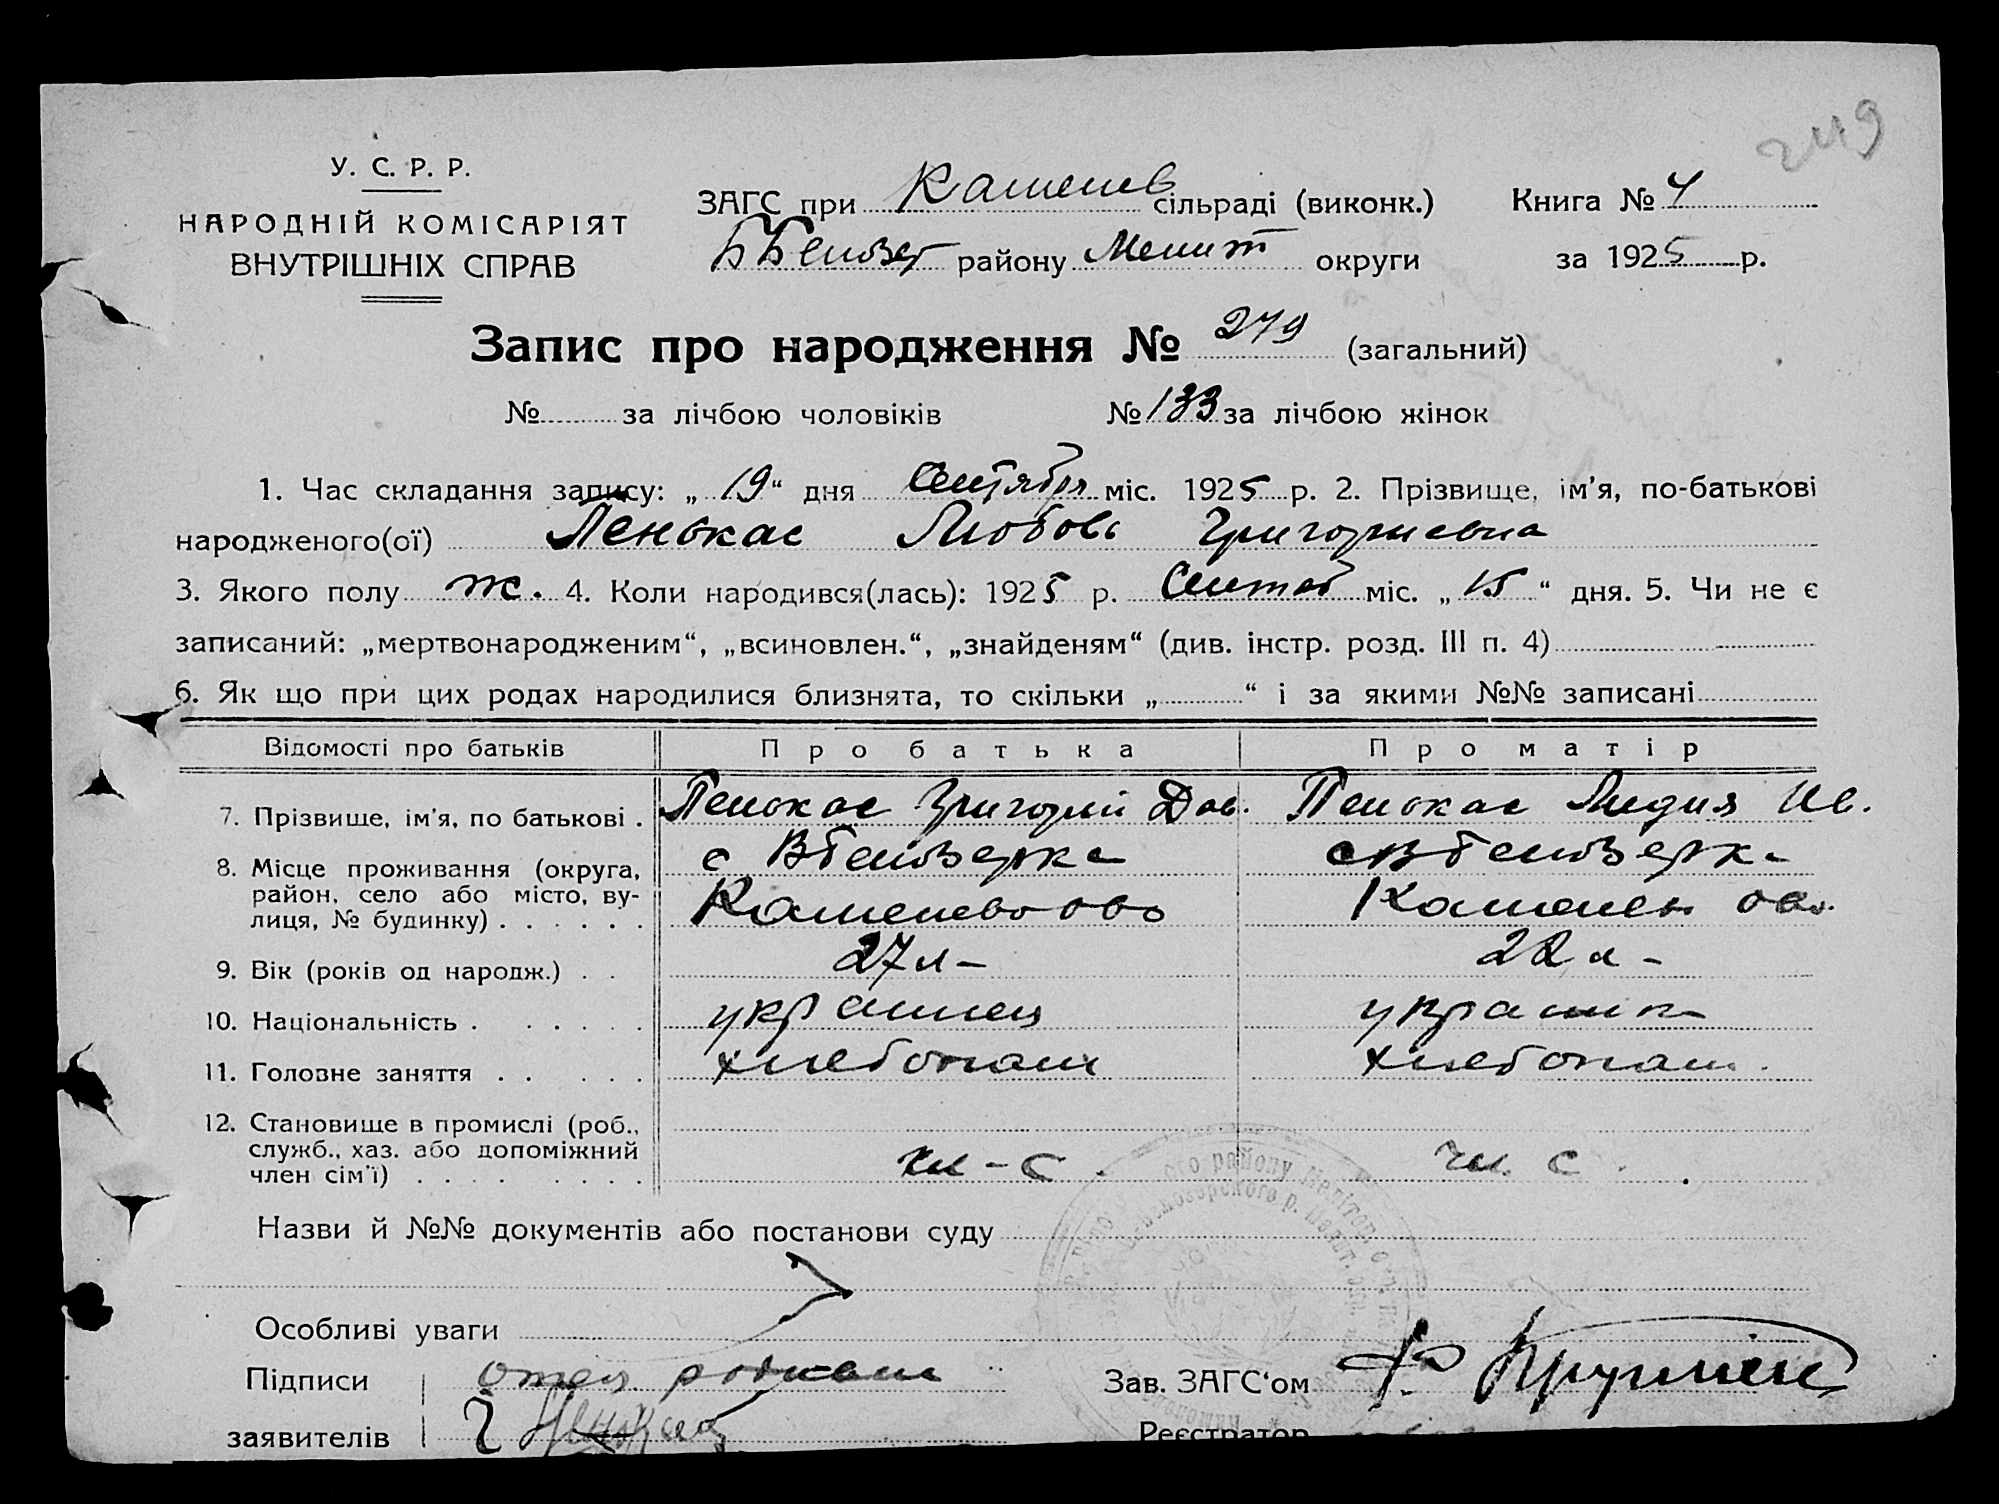 249
У. С. Р. Р.
НАРОДНІЙ КОМІСАРІЯТ
ВНУТРІШНІХ СПРАВ
ЗАГС при Каменев сільраді (виконк.) Книга № 4
району Мелит округи за 1925 р.
Запис про народження № 279 (загальний)
№ за лічбою чоловіків № 133 за лічбою жінок
1. Час складання запису: „19“ дня Сентября міс. 1925 р. 2. Прізвище, ім'я, по-батькові
народженого(ої) Пенькас Любовь Григориевна
3. Якого полу ж. 4. Коли народився(лась): 1925 р. Сентяб міс. „15“ дня. 5. Чи не є
записаний: „мертвонародженим“, „всиновлен.“, „знайденям“ (див. інстр. розд. III п. 4)
6. Як що при цих родах народилися близнята, то скільки „ “ і за якими №№ записані
Відомості про батьків Про батька Про матір
7. Прізвище, ім'я, по батькові . Пенькас Григорий Дав. Пенькас Лидия Ив.
8. Місце проживання (округа,
район, село або місто, ву-
лиця, № будинку) . . . . . .
с В Белозерка с В Белозерка
9. Вік (років од народж.) . . 27 л – 22 л –
10. Національність . . . . . . украинец украинка
11. Головне заняття . . . . . хлебопаш хлебопаш.
12. Становище в промислі (роб.,
служб., хаз. або допоміжний
член сім'ї) . . . . . . . .
чл – с. чл. с.
Назви й №№ документів або постанови суду
Особливі уваги
Підписи отец
заявителів
Зав. ЗАГС'ом
Реєстратор